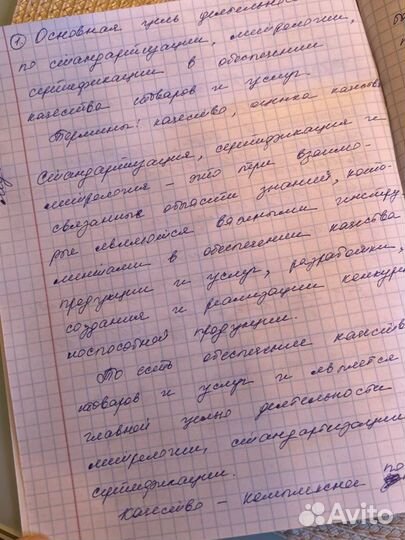 ① Основная цель деятельнос
по стандартизации, метрологии,
сертификации в обеспечении
качества товаров и услуг.
Термины: качество, оценка качества
Стандартизация, сертификация и
метрология – это три взаимо-
связанные области знаний, кото-
рые являются важными инстру
ментами в обеспечении качества
продукции и услуг, разработки,
создания и реализации конкурен
носпособной продукции.
То есть обеспечение качеств
товаров и услуг и является
главной целью деятельности
метрологии, стандартизации
сертификации.
Качество – комплексное по
Avito